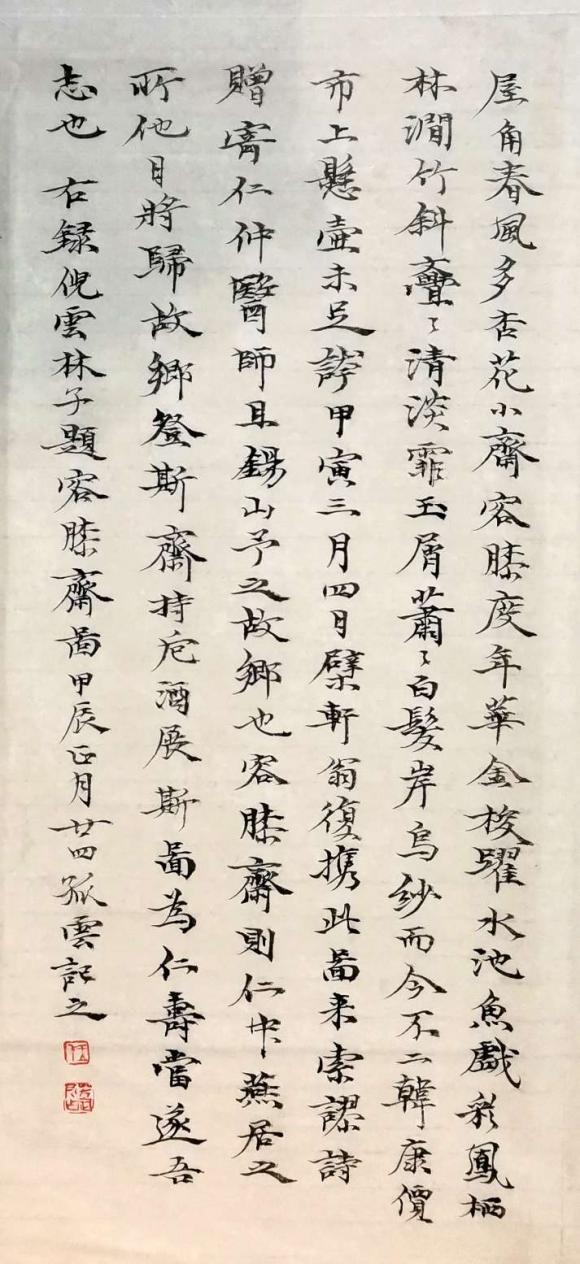 屋角春風多杏花小齋容膝度年華金梭躍水池魚戲彩鳳栖
林澗竹斜亹〻清淡霏玉屑蕭〻白髮岸烏紗而今不二韓康價
市上懸壺未足誇甲寅三月四日檗軒翁復携此啚来索謬詩
贈寄仁仲醫師且錫山予之故鄉也容膝齋則仁中燕居之
所他日將歸故鄉登斯齋持卮酒展斯啚為仁壽當遂吾
志也 右錄倪雲林子題容膝齋啚甲辰正月廿四孤雲記之